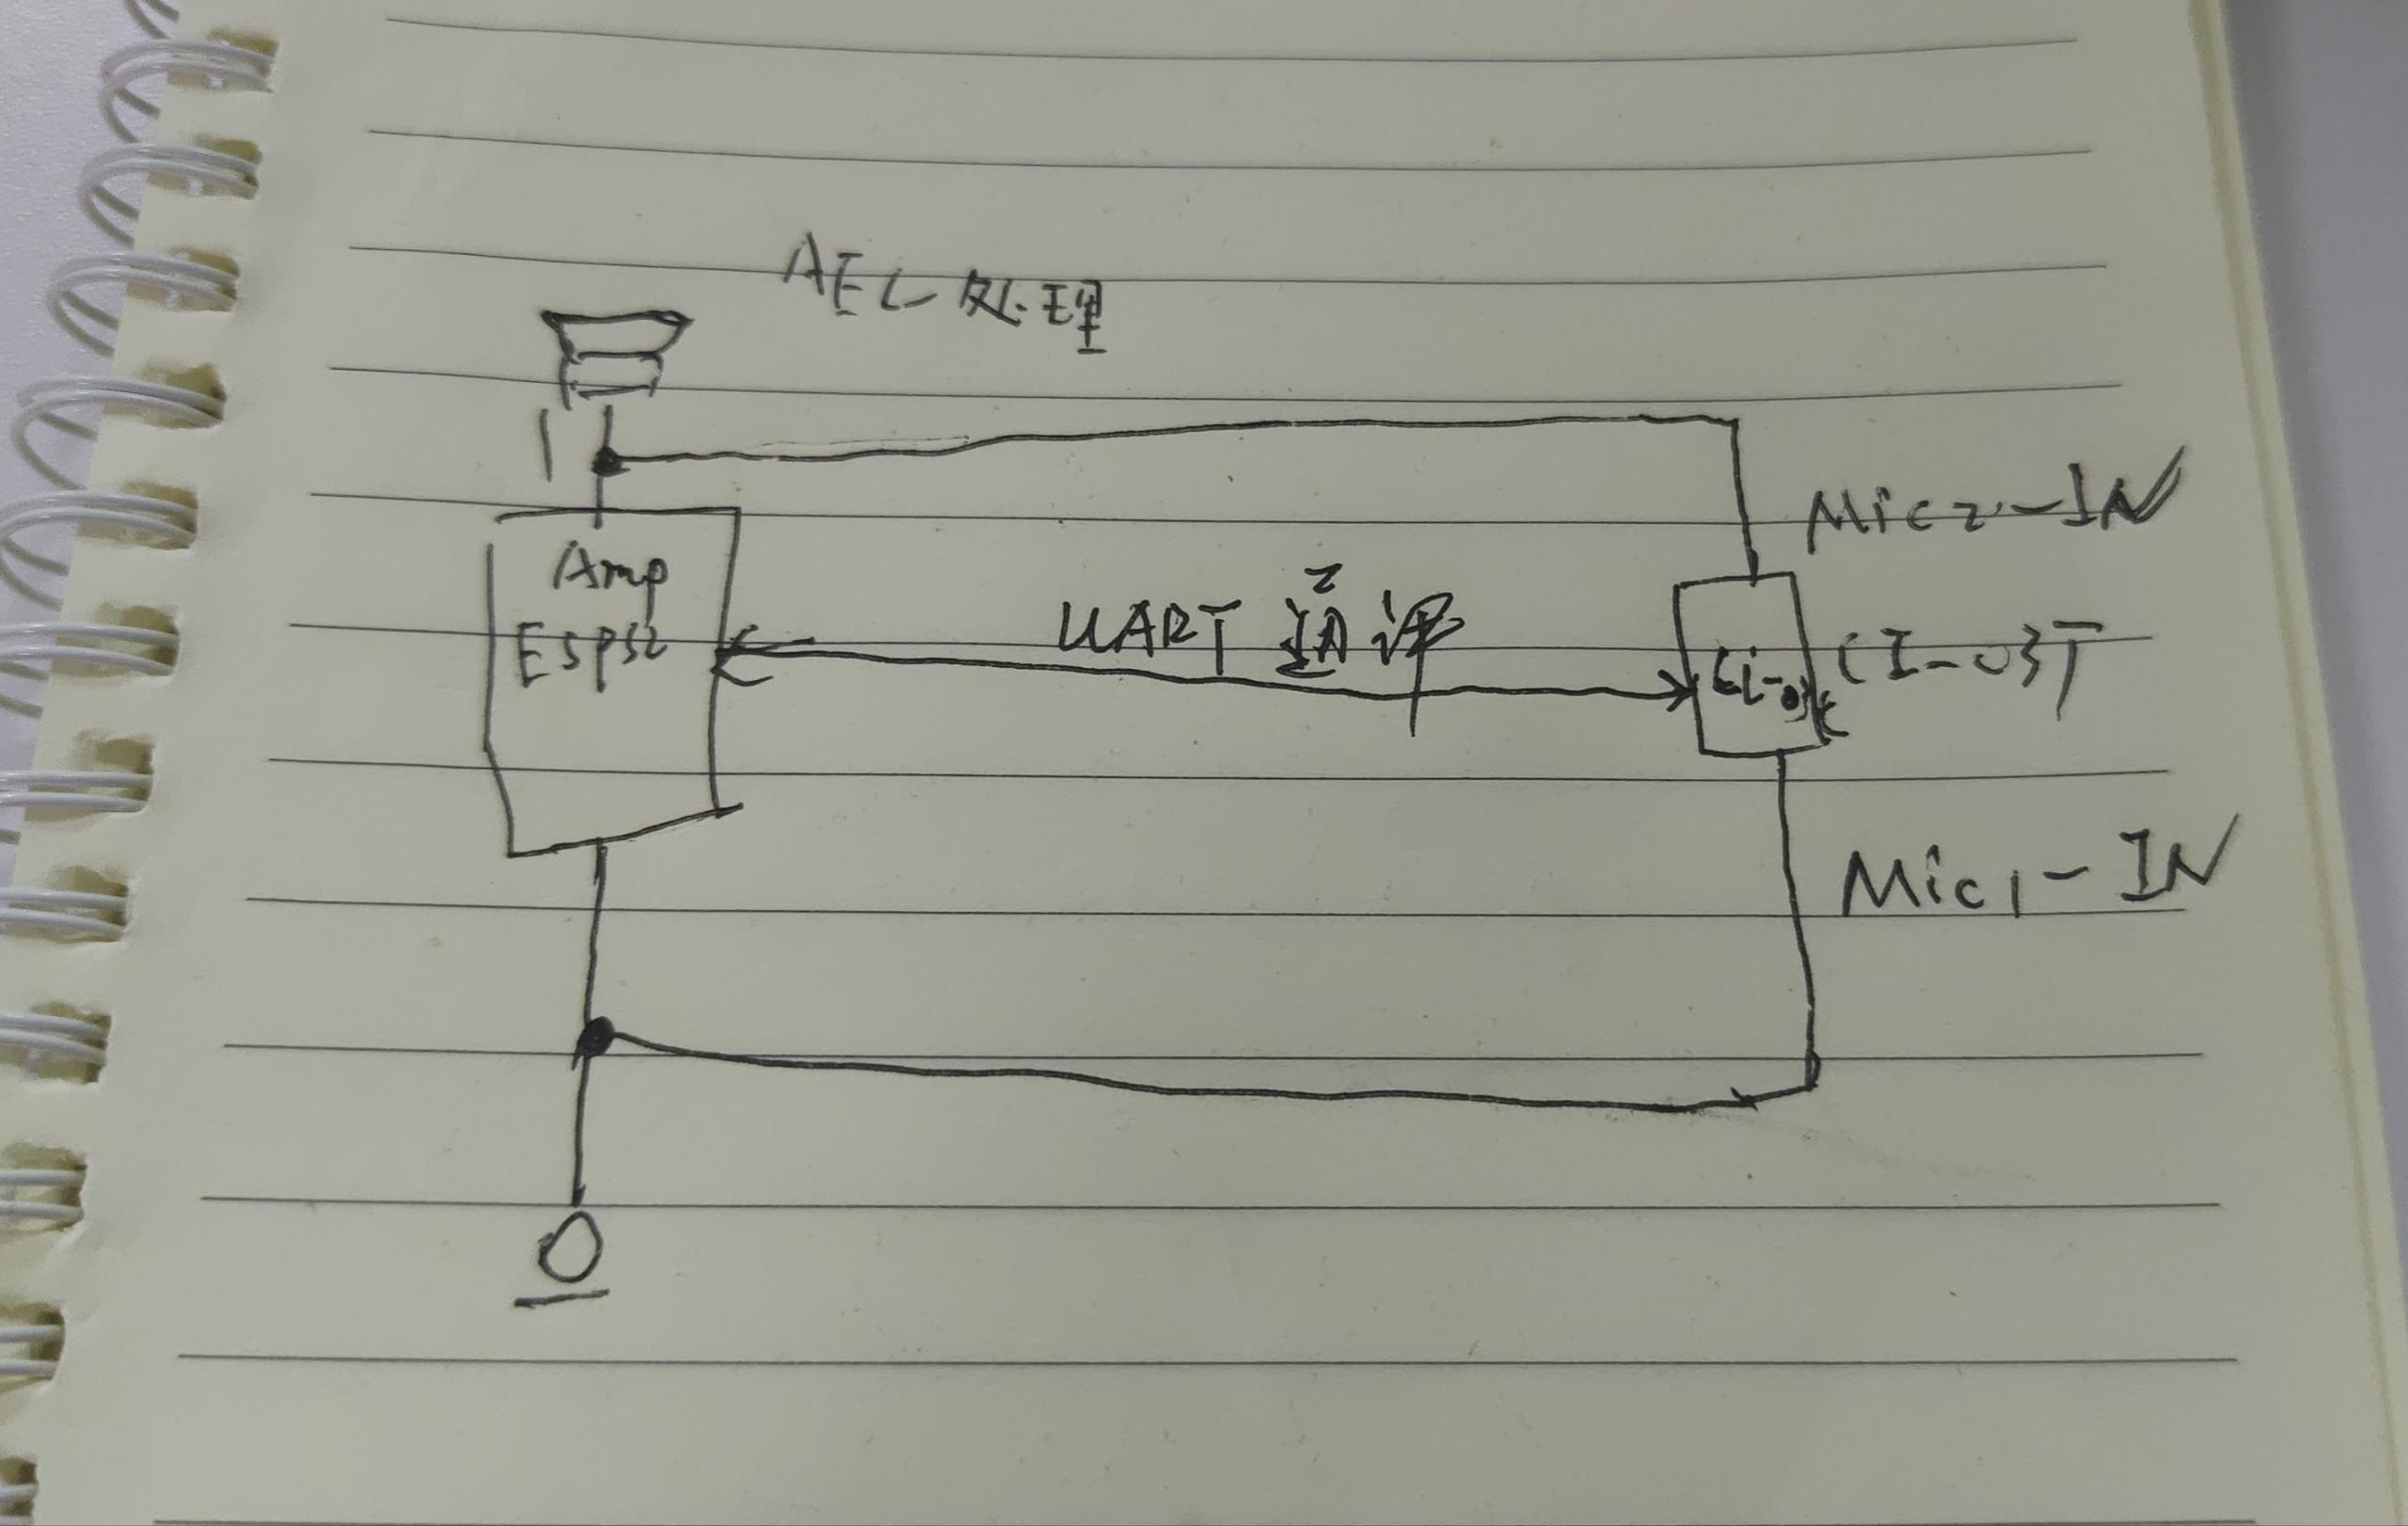 AEC处理
Mic2-IN
Amp
ESP32
UART 通讯
CI-03T
Mic1-IN